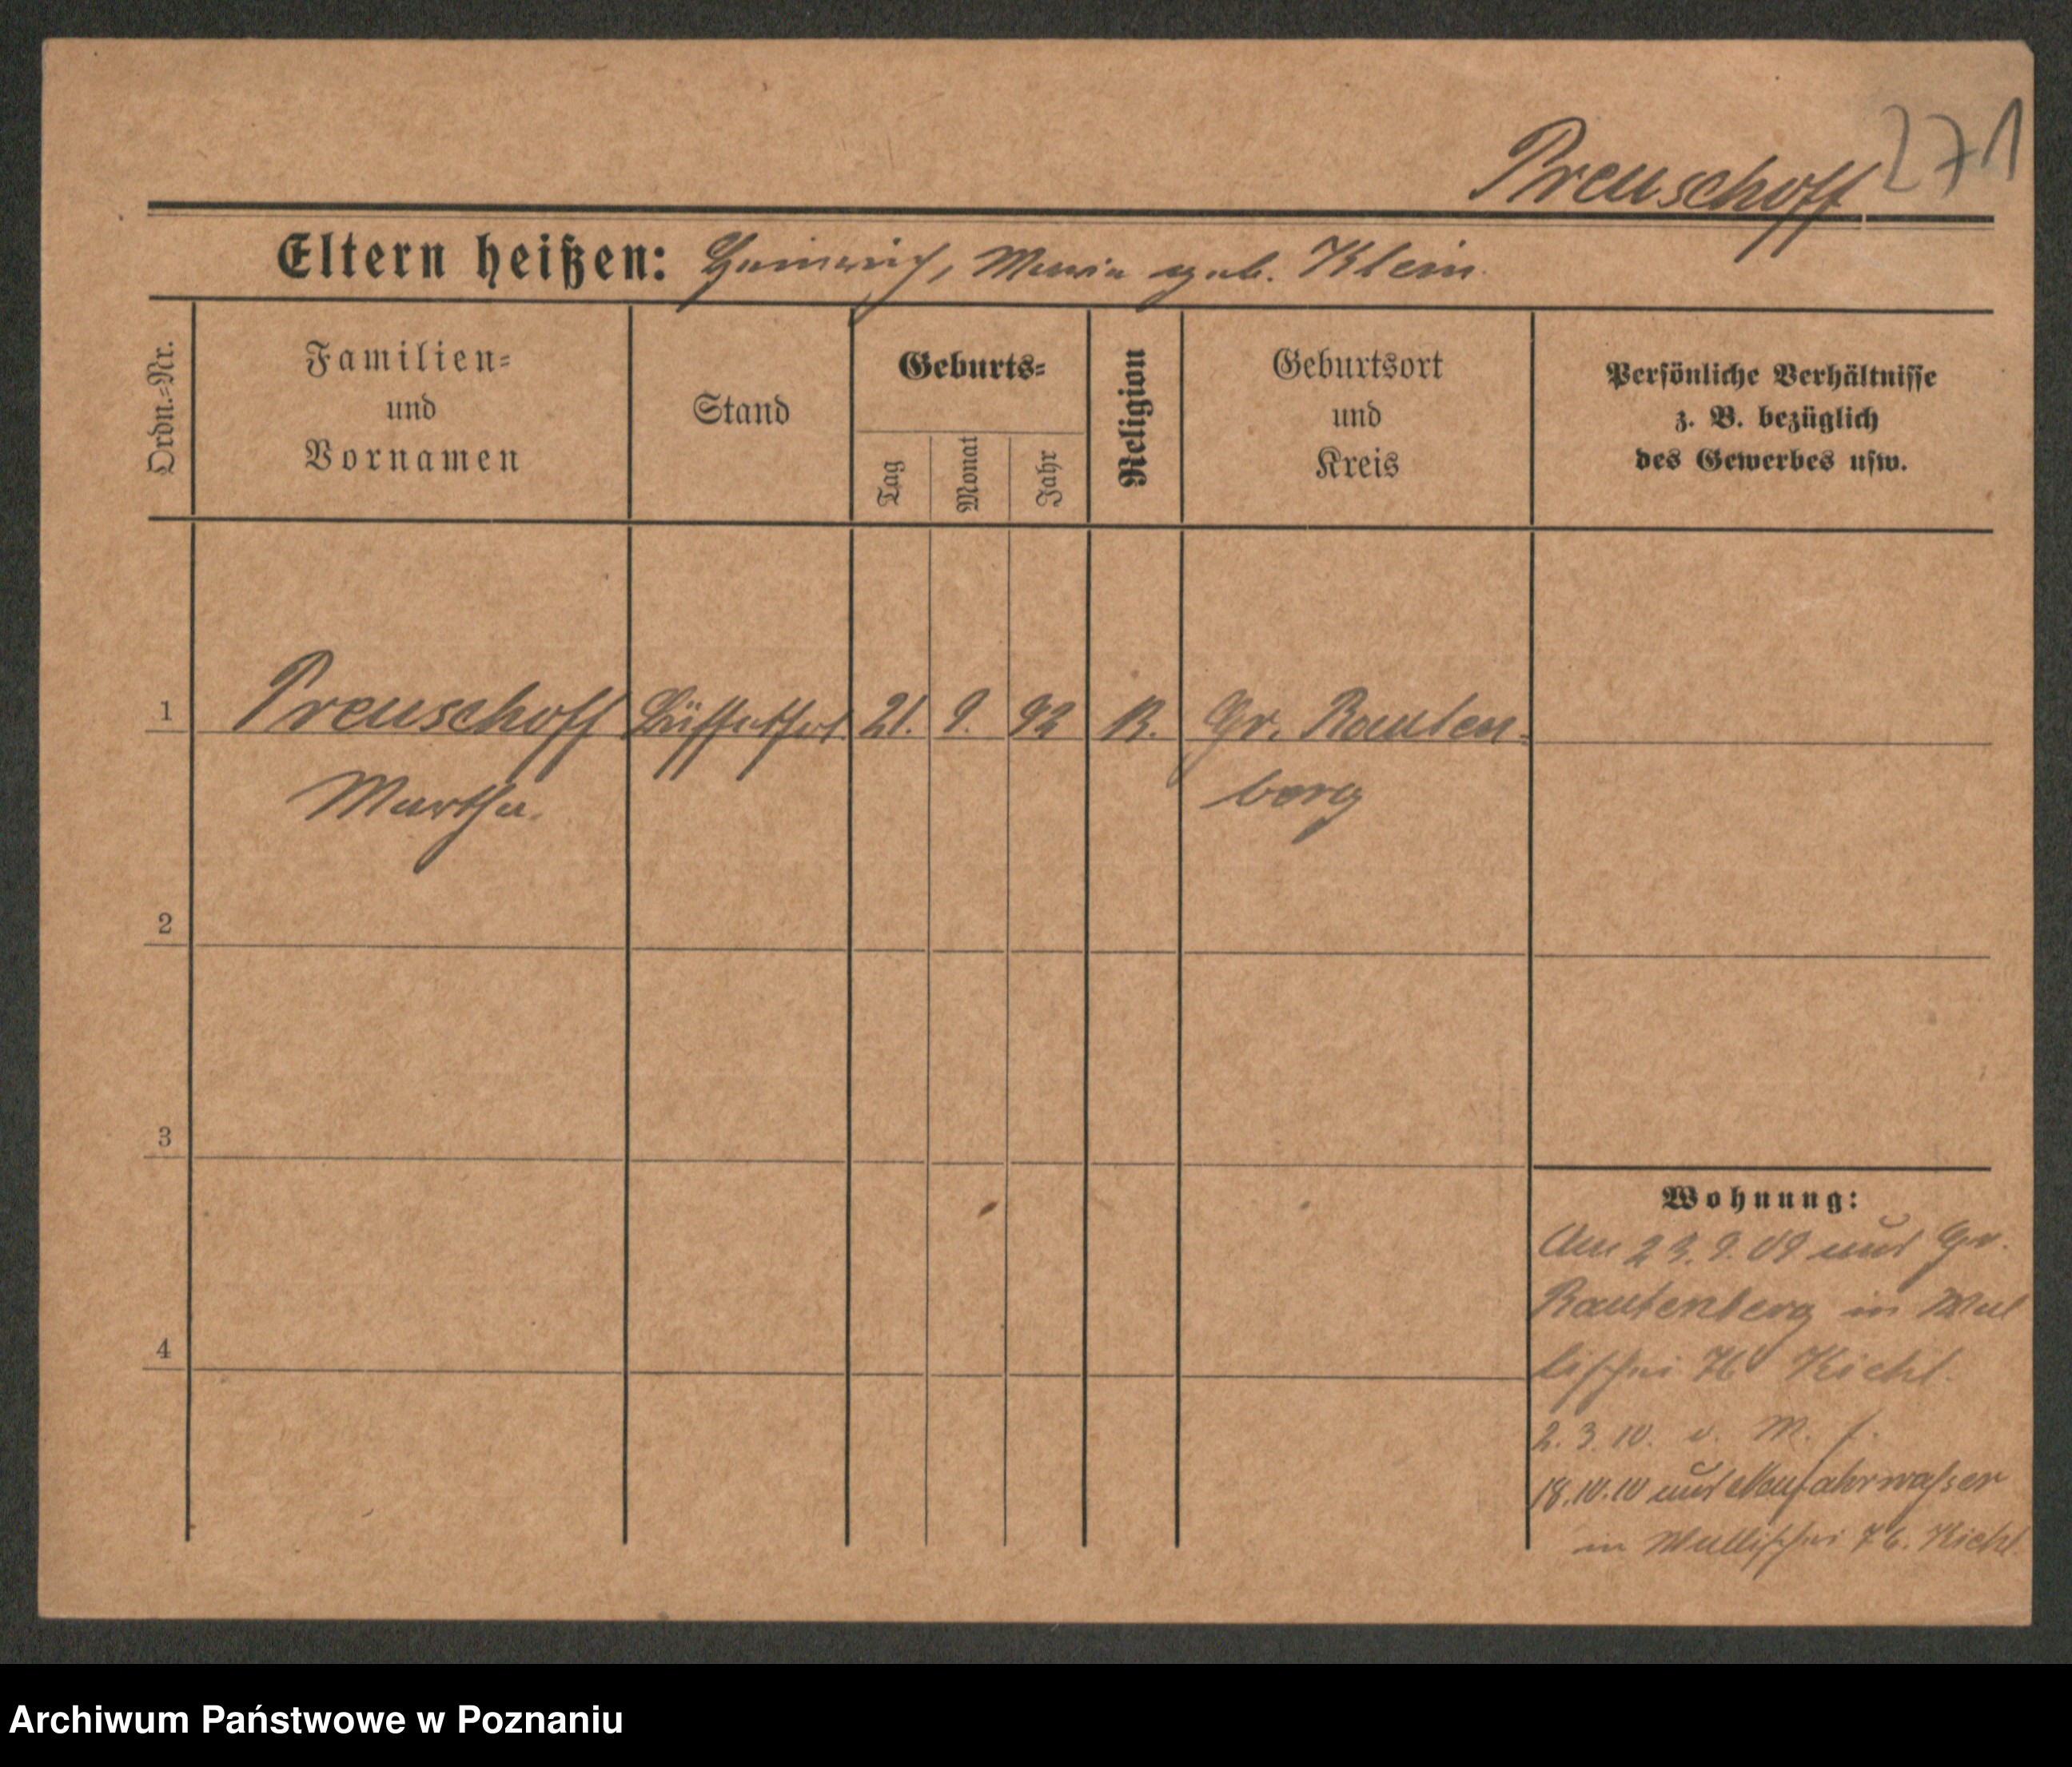 271
Preuschoff
Eltern heißen: Heinrich, Maria geb. Klein.
Ordn.=Nr.
Familien=
und
Vornamen
Stand
Geburts=
Tag
Monat
Jahr
Religion
Geburtsort
und
Kreis
Persönliche Verhältnisse
z. B. bezüglich
des Gewerbes usw.
1 Preuschoff 21. 9. 92 Gr. Rauten-
Martha. berg
2
3
4
Wohnung:
Am 23.9.09 aus Gr.
Rautenberg in Wal
lischei 76 Kiehl.
2.3.10. v. M.
18.10.10 aus Neufahrwasser
in Wallischei 76. Kiehl.
Archiwum Państwowe w Poznaniu